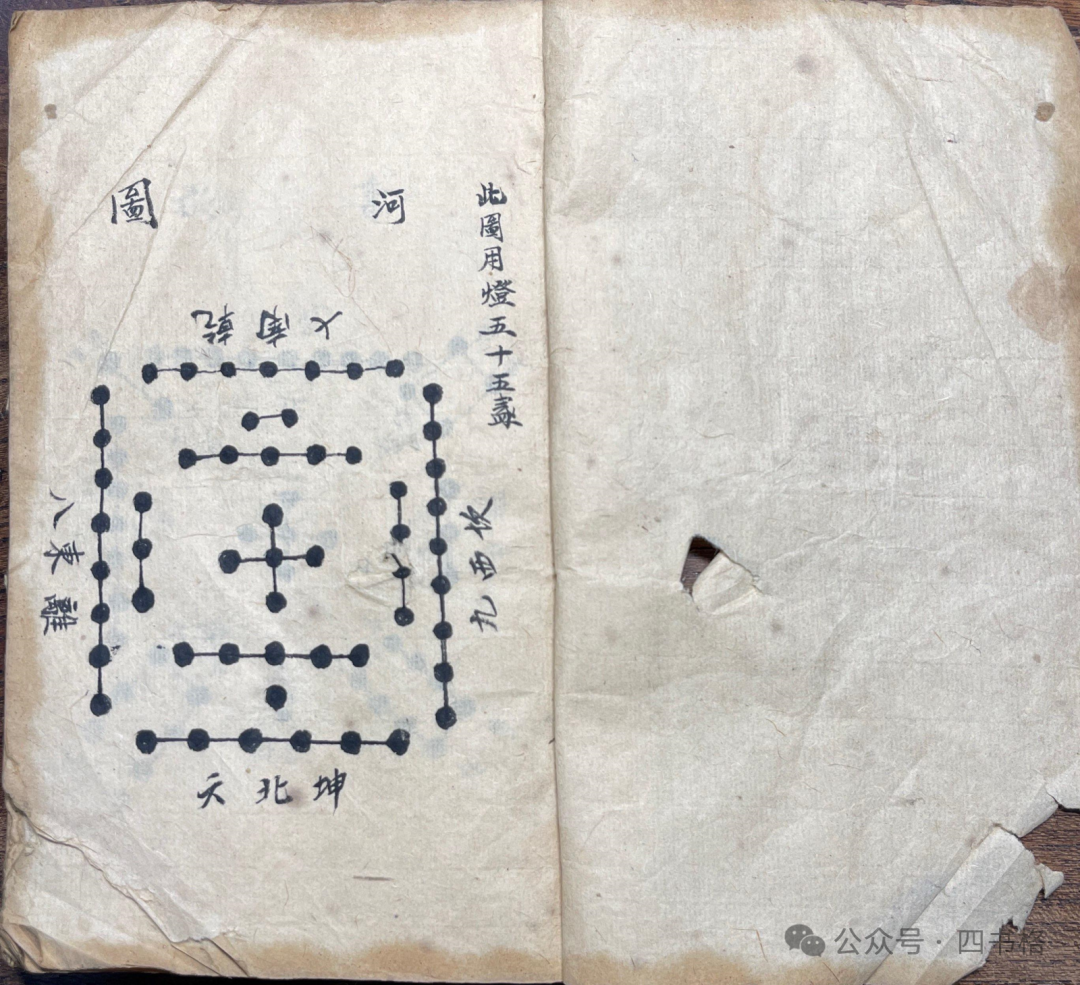 此圖用燈五十五盞
河圖
七南乾
八東離
九西坎
六北坤
公众号·四书格